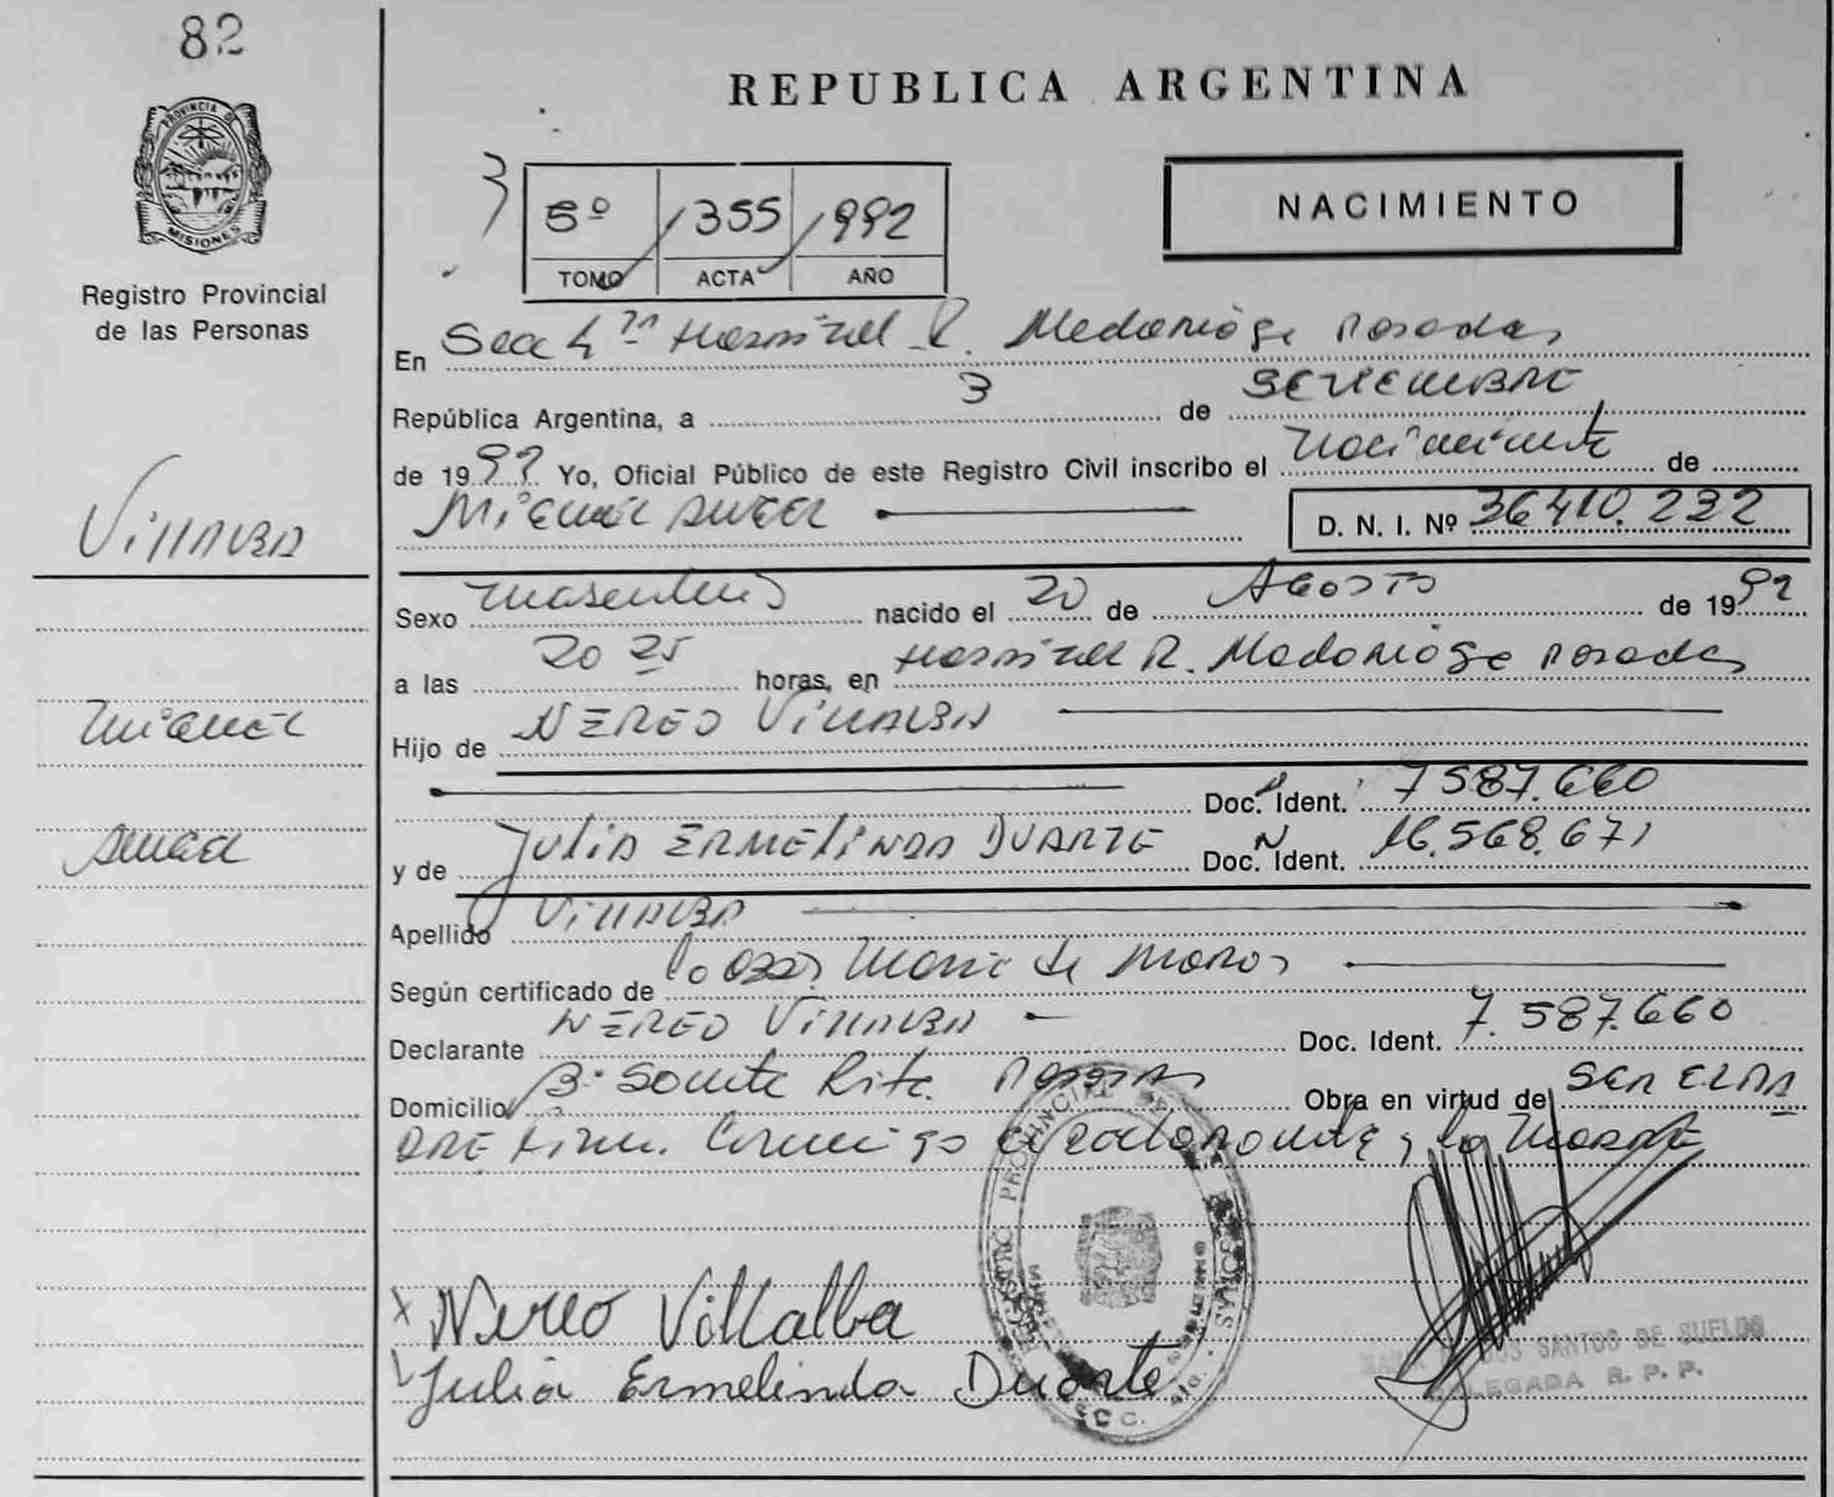 82
PROVINCIA DE
MISIONES
Registro Provincial
de las Personas
REPUBLICA ARGENTINA
NACIMIENTO
5º 1355 1992
TOMO ACTA AÑO
En Secc 4ta Hospital R. Madariaga Posadas
República Argentina, a 3 de SETIEMBRE
de 1992 Yo, Oficial Público de este Registro Civil inscribo el Nacimiento de
MIGUEL ANGEL D. N. I. Nº 36410.232
VILLALBA
Sexo masculino nacido el 20 de AGOSTO de 1992
a las 20 25 horas, en Hospital R. Madariaga Posadas
MIGUEL
Hijo de NEREO VILLALBA
Doc. Ident. 7587.660
ANGEL
y de JULIA ERMELINDA DUARTE Doc. Ident. 16.568.671
Apellido VILLALBA
Según certificado de
Declarante NEREO VILLALBA Doc. Ident. 7.587.660
Domicilio Bº Santa Rita Posadas Obra en virtud de SER EL PA
DRE Firm. Conmigo la MADRE
Nereo Villalba
Julia Ermelinda Duarte
REGISTRO PROVINCIAL DE
SANTOS DE SUELDO
DELEGADA R. P. P.